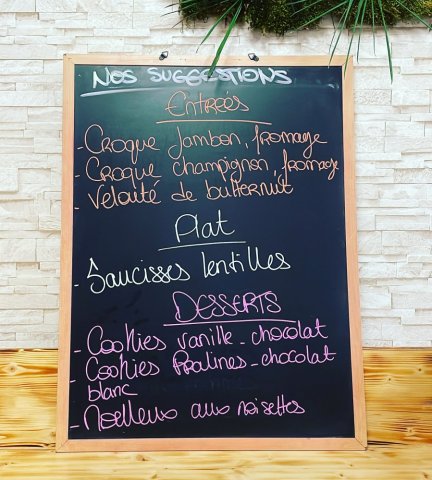 NOS SUGGESTIONS
Entrées
- Croque Jambon, fromage
- Croque champignon, fromage
- Velouté de butternut
Plat
- Saucisses lentilles
DESSERTS
- Cookies vanille - chocolat
- Cookies Pralines - chocolat
blanc
- Moelleux aux noisettes